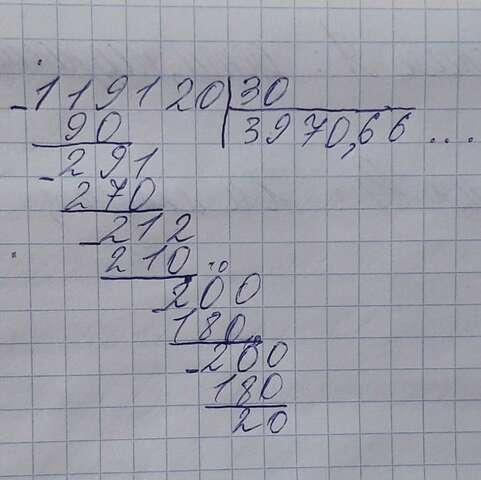 119120 30
90 3970,66...
291
270
212
210
200
180
200
180
20